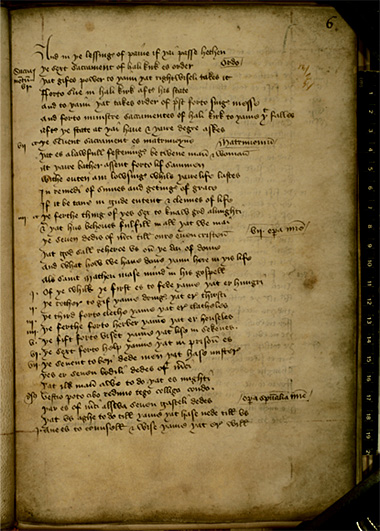 6.
And in ye lessinge of paine if yai passe hethen
Ye sext sacrament of hali kirk es order Ordo
Yat gifes power to yaim yat rightwiseli takes it
Forto sive in hali kirk aftir his state
And to yaim yat takes order of pst forto singe messe
And forto ministre sacramentes of hali kirk to yaim yt falles
Aftir ye state at yai have & yaire degre askes
vii Ye sevent sacrament es matrimoyne Matrimonium
Yat es a lawfull festenynge betwene man & woman
At yaire bather assent forto lif sammen
Withouten ani lowsinge while yaire life lastes
In remedi of sinnes and getinge of grace
If it be tane in gude entent & clennes of life
Ye ferthe thing of ye sex to knaw god almighti
Yat us behoves fulfill in all yat we mai
Ye seven dedis of merci till oure even cristen vii. opa mie
Yat god sall reherce us on ye dai of dome
And what how we have done yaim here in yis life
Als saint Mathew mase mind in his gospell
i. Of ye whilk ye first es to fede yaim yat er hungri
ii. Ye tothir to gif yaim drink yat er thristi
iii. Ye third forto clethe yaim yat er clatheles
iiii. Ye ferthe forto herber yaim yat er houseles
v. Ye fift forto viset yaim yat lies in sekenes
vi. Ye sext forto help yaim yat in prison es
vii. Ye sevent to beri dede men yat hase mister
Yes er seven bodili dedes of merci
Yat ilk man augh to do yat es mighti
Vestio poto cibo redimo tego colligo condo
Yar es of merci alsswa seven gasteli dedes opa spualia mie
Yat us aghe to do till yaim yat hase nede till us
i. Ane es to counsaill & wisse yaim yat er will